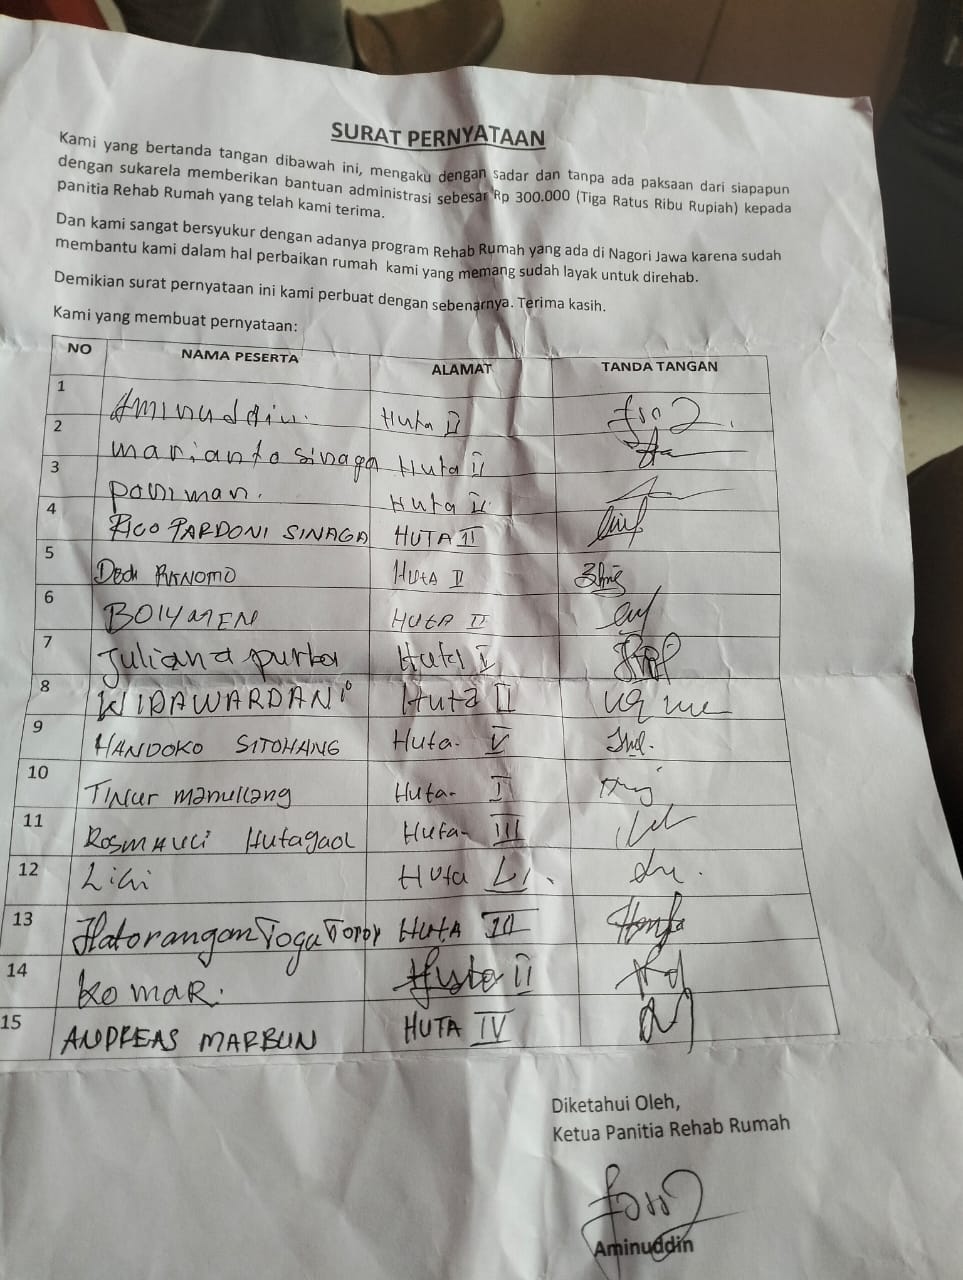 SURAT PERNYATAAN
Kami yang bertanda tangan dibawah ini, mengaku dengan sadar dan tanpa ada paksaan dari siapapun
dengan sukarela memberikan bantuan administrasi sebesar Rp 300.000 (Tiga Ratus Ribu Rupiah) kepada
panitia Rehab Rumah yang telah kami terima.
Dan kami sangat bersyukur dengan adanya program Rehab Rumah yang ada di Nagori Jawa karena sudah
membantu kami dalam hal perbaikan rumah kami yang memang sudah layak untuk direhab.
Demikian surat pernyataan ini kami perbuat dengan sebenarnya. Terima kasih.
Kami yang membuat pernyataan:
NO NAMA PESERTA ALAMAT TANDA TANGAN
1 Aminuddin. Huta II
2 marianto sinaga Huta II
3 poniman. Huta II
4 RICO PARDONI SINAGA HUTA II
5 Dedi PURNOMO HUTA II
6 BOIYMEN HUTA II
7 Juliana purba Huta V
8 WIDAWARDANI Huta II
9 HANDOKO SITOHANG Huta V
10 Timur manullang Huta I
11 Hutagaol Huta III
12 Lili Huta
13 Hatorangan Toga HUTA III
14 KOMAR. Huta II
15 ANDREAS MARBUN HUTA IV
Diketahui Oleh,
Ketua Panitia Rehab Rumah
Aminuddin